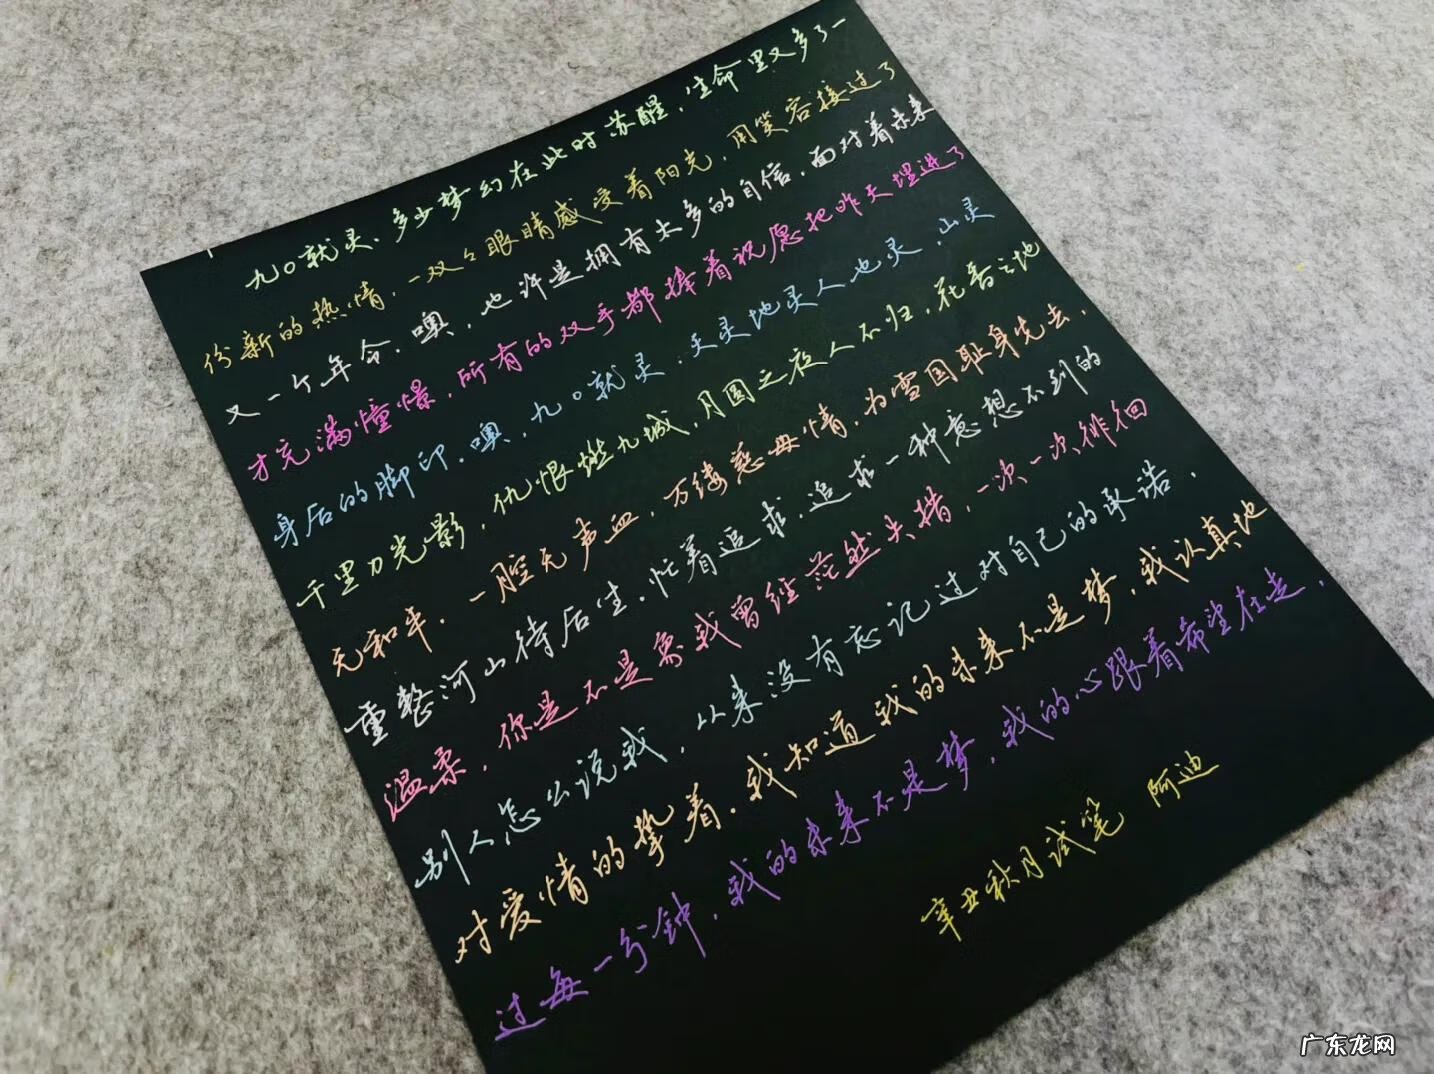 九〇就灵，多少梦幻在此时苏醒，生命里又多了一
份新的热情，一双々眼睛感受着阳光，用笑容接过了
又一个年令，噢，也许是拥有太多的自信，面对着未来
才充满憧憬，所有的双手都捧着祝愿把昨天埋进了
身后的脚印，噢，九〇就灵，天灵地灵人也灵，山灵
千里刀光影，仇恨燃九城，月圆之夜人不归，花香之地
无和平，一腔无声血，万缕慈母情，为雪国耻身先去，
重整河山待后生，忙着追求，追求一种意想不到的
温柔，你是不是象我曾经茫然失措，一次一次徘徊
别人怎么说我，从来没有忘记过对自己的承诺，
对爱情的挚着，我知道我的未来不是梦，我认真地
过每一分钟，我的未来不是梦，我的心跟着希望在走，
辛丑秋月试笔 阿迪
广东龙网